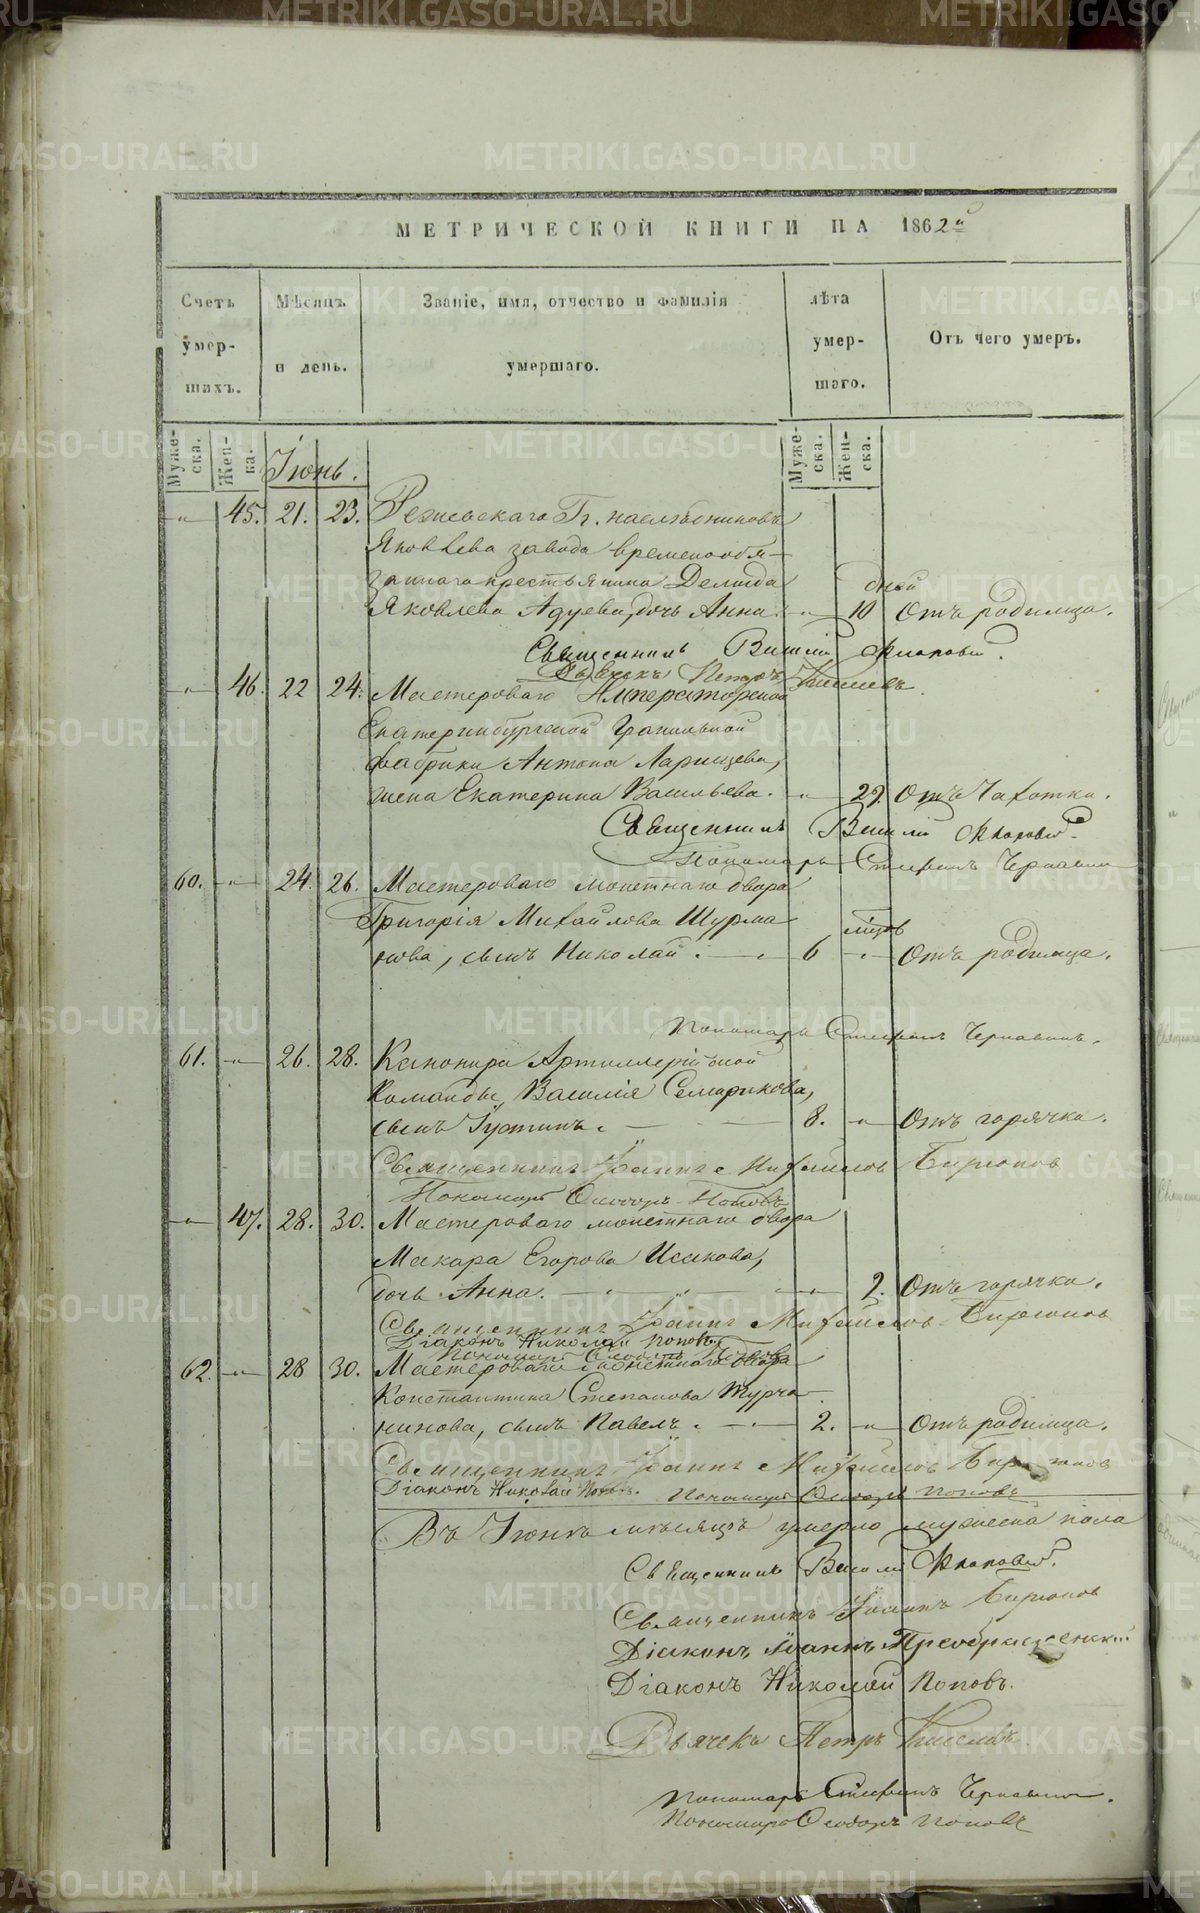 МЕТРИЧЕСКОЙ КНИГИ НА 1862й
Счетъ умер- шихъ.
Мѣсяцъ и день.
Званіе, имя, отчество и фамилія умершаго.
лѣта умер- шаго.
Отъ чего умеръ.
Муже- ска.
Жен- ска.
Муже- ска.
Жен- ска.
Іюнь.
" 45. 21. 23. Режевскаго Гг. наслѣдниковъ
Яковлева завода временнообя-
заннаго крестьянина Демида дней
Яковлева Адуева, дочь Анна. " 10 Отъ родимца.
Священникъ Василій Флоровъ.
Дьячекъ Петръ Киселевъ.
" 46. 22 24. Мастероваго Императорской
Екатеринбургской Гранильной
фабрики Антона Ларищева,
жена Екатерина Васильева. " 29. Отъ Чахотки.
Священникъ Василій Флоровъ.
Пономарь Стефанъ Чернавинъ
60. " 24. 26. Мастероваго монетнаго двора
Григорія Михайлова Шурма мѣсяцовъ
нова, сынъ Николай. 6 " Отъ родимца.
Пономарь Стефанъ Чернавинъ.
61. " 26. 28. Канонира Артиллерійской
Команды, Василія Семерикова,
сынъ Іустинъ. 8. " Отъ горячки.
Священникъ Іоаннъ Михайловъ Бирюковъ
Пономарь Ѳеодоръ Поповъ
" 47. 28. 30. Мастероваго монетнаго двора
Макара Егорова Исакова,
дочь Анна. " 2. Отъ горячки.
Священникъ Іоаннъ Михайловъ Бирюковъ
Діаконъ Николай Поповъ
Пономарь Ѳеодоръ Поповъ
62. " 28 30. Мастероваго монетнаго двора
Константина Степанова Турча
нинова, сынъ Павелъ. 2. " Отъ родимца.
Священникъ Іоаннъ Михайловъ Бирюковъ
Діаконъ Николай Поповъ. Пономарь Ѳеодоръ Поповъ
Въ Іюнѣ мѣсяцѣ умерло мужеска пола
Священникъ Василій Флоровъ.
Священникъ Іоаннъ Бирюковъ
Діаконъ Іоаннъ Преображенскій
Діаконъ Николай Поповъ.
Дьячекъ Петръ Киселевъ
Пономарь Стефанъ Чернавинъ.
Пономарь Ѳеодоръ Поповъ
METRIKI.GASO-URAL.RU